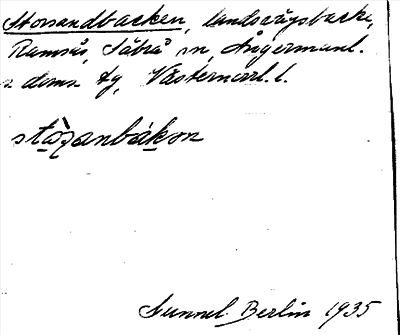 Storsandbacken, landsvägsbacke,
Ramsås, Säbrå sn, Ångermanl.
s doms tg, Västernorrl. l.
stàʒanbákɔn
Gunnel Berlin 1935